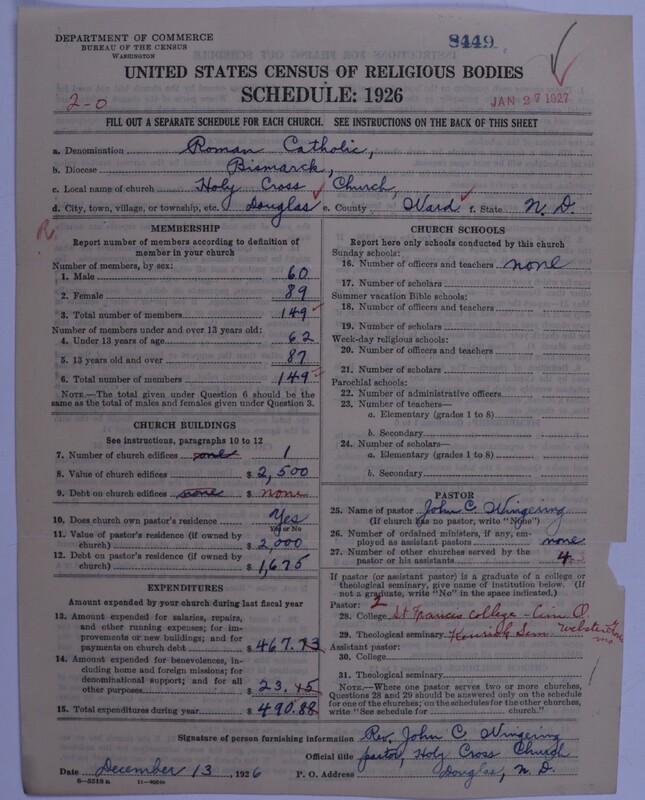 DEPARTMENT OF COMMERCE
BUREAU OF THE CENSUS
WASHINGTON
8449
UNITED STATES CENSUS OF RELIGIOUS BODIES
SCHEDULE: 1926
2-0
JAN 27 1927
FILL OUT A SEPARATE SCHEDULE FOR EACH CHURCH. SEE INSTRUCTIONS ON THE BACK OF THIS SHEET
a. Denomination Roman Catholic,
b. Diocese Bismarck,
c. Local name of church Holy Cross Church,
d. City, town, village, or township, etc. Douglas e. County Ward f. State N. D.
R
MEMBERSHIP
Report number of members according to definition of
member in your church
Number of members, by sex:
1. Male 60
2. Female 89
3. Total number of members 149
Number of members under and over 13 years old:
4. Under 13 years of age 62
5. 13 years old and over 87
6. Total number of members 149
NOTE.—The total given under Question 6 should be
same as the total of males and females given under Question 3.
CHURCH BUILDINGS
See instructions, paragraphs 10 to 12
7. Number of church edifices 1
8. Value of church edifices $ 2,500
9. Debt on church edifices none $ none
10. Does church own pastor's residence Yes
Yes or No
11. Value of pastor's residence (if owned by
church) $ 2,000
12. Debt on pastor's residence (if owned by
church) $ 1,675
EXPENDITURES
Amount expended by your church during last fiscal year
13. Amount expended for salaries, repairs,
and other running expenses; for im-
provements or new buildings; and for
payments on church debt $ 467.73
14. Amount expended for benevolences,
including home and foreign missions; for
denominational support; and for all
other purposes $ 23.15
15. Total expenditures during year $ 490.88
CHURCH SCHOOLS
Report here only schools conducted by this church
Sunday schools:
16. Number of officers and teachers none
17. Number of scholars
Summer vacation Bible schools:
18. Number of officers and teachers
19. Number of scholars
Week-day religious schools:
20. Number of officers and teachers
21. Number of scholars
Parochial schools:
22. Number of administrative officers
23. Number of teachers—
a. Elementary (grades 1 to 8)
b. Secondary
24. Number of scholars—
a. Elementary (grades 1 to 8)
b. Secondary
PASTOR
25. Name of pastor John C. Wingering
(If church has no pastor, write "None")
26. Number of ordained ministers, if any, em-
ployed as assistant pastors none
27. Number of other churches served by the
pastor or his assistants 4
If pastor (or assistant pastor) is a graduate of a college or
theological seminary, give name of institution below. (If
not a graduate, write "No" in the space indicated.)
Pastor: 2
28. College St Francis College - Cinn O.
29. Theological seminary Kenrick Sem Webster
Assistant pastor:
30. College
31. Theological seminary
NOTE.—Where one pastor serves two or more churches,
Questions 28 and 29 should be answered only on the schedule
for one of the churches; on the schedules for the other churches,
write "See schedule for church."
Signature of person furnishing information Rev. John C. Wingering
Official title pastor, Holy Cross Church
Date December 13, 1926 P. O. Address Douglas, N. D.